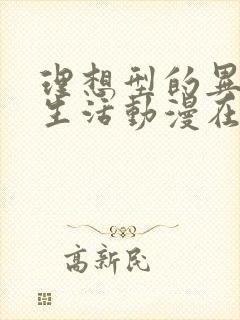 理想型的異
生活動漫在
高新民